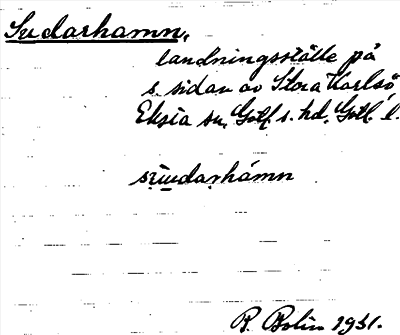 Sudarhamn,
landningsställe på
s. sidan av Stora Karlsö,
Eksta sn, Gotl. s. hd, Gotl. l.
sudarhámn
B. Bolin 1931.